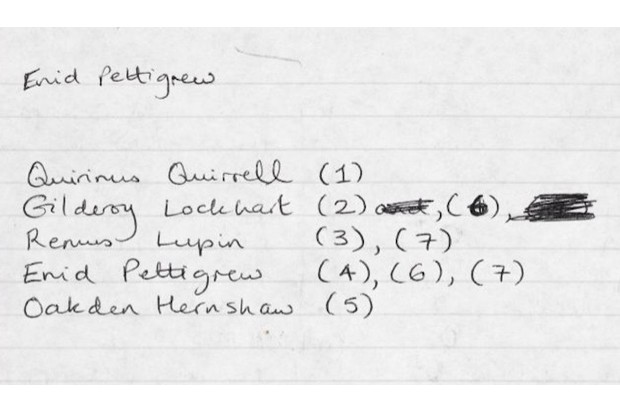 Enid Pettigrew
Quirinus Quirrell (1)
Gilderoy Lockhart (2) , (6),
Remus Lupin (3), (7)
Enid Pettigrew (4), (6), (7)
Oakden Hernshaw (5)